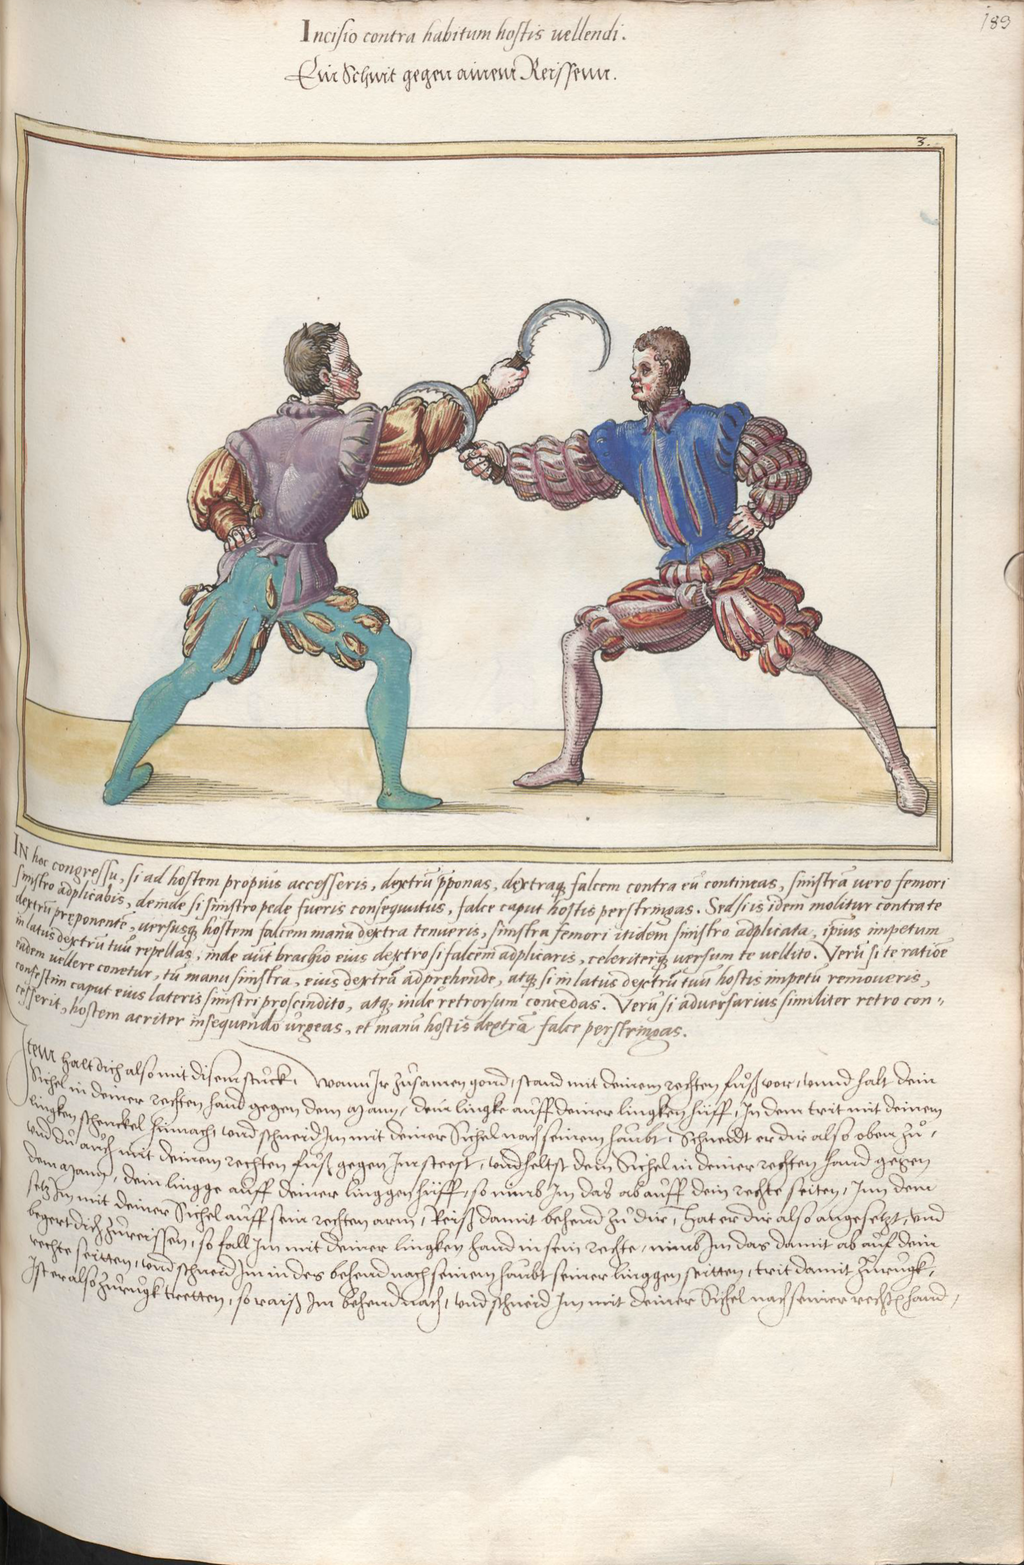 189
Incisio contra habitum hostis uellendi.
Ein Schnit gegen ainem Reissenn.
3.
IN hoc congressu, si ad hostem propius accesseris, dextrũ p̃ponas, dextraq; falcem contra eũ contineas, sinistrã uero femori
sinistro adplicabis, deinde si sinistro pede fueris consequutus, falce caput hostis perstringas. Sed si is idem molitur contra te
dextrũ preponentẽ, uersusq; hostem falcem manu dextra tenueris, sinistra femori itidem sinistro adplicata, ipsius impetum
in latus dextrũ tuũ repellas, inde aut brachio eius dextro si falcem adplicaris, celeriterq; uersum te uellito. Verũ si te ratiõe
eadem uellere conetur, tu manu sinistra, eius dextrã adprehende, atq; si in latus dextrũ tuũ hostis impetũ remoueris,
confestim caput eius lateris sinistri proscindito, atq; inde retrorsum concedas. Verũ si aduersarius similiter retro con-
cesserit, hostem acriter insequendo urgeas, et manũ hostis dextrã falce perstringas.
Item halt dich also mit disem stuckh, wann Ir zusamen gond, stand mit deinem rechten fuß vor, vnnd halt dein
Sichel in deiner rechten hand gegen dem Mann, dein lingke auff deiner lingken hüff, In dem trit mit deinem
lingken schenckel hinnach, vnd schneid Im mit deiner Sichel nach seinem haubt, Schneidt er dir also oben zů,
vnd du auch mit deinem rechten fuß gegen Im steest, vnd heltst dein Sichel in deiner rechten hand gegen
dem Mann, dein lingge auff deiner linggen hüff, so nimb Im das ab auff dein rechte seiten, Inn dem
setz Im mit deiner Sichel auff sein rechten arm, Reiß damit behend zů dir, hat er dir also angesetzt, vnd
begert dich zůreissen, so fall Im mit deiner lingken hand in sein rechte, nimb Im das damit ab auf dein
rechte seitten, vnd schneid Im in des behend nach seinem haubt seiner linggen seitten, trit damit zurugk,
Ist er also zurugk tretten, so raiß Im behend nach, vnd schneid Im mit deiner Sichel nach seiner rechten hand,